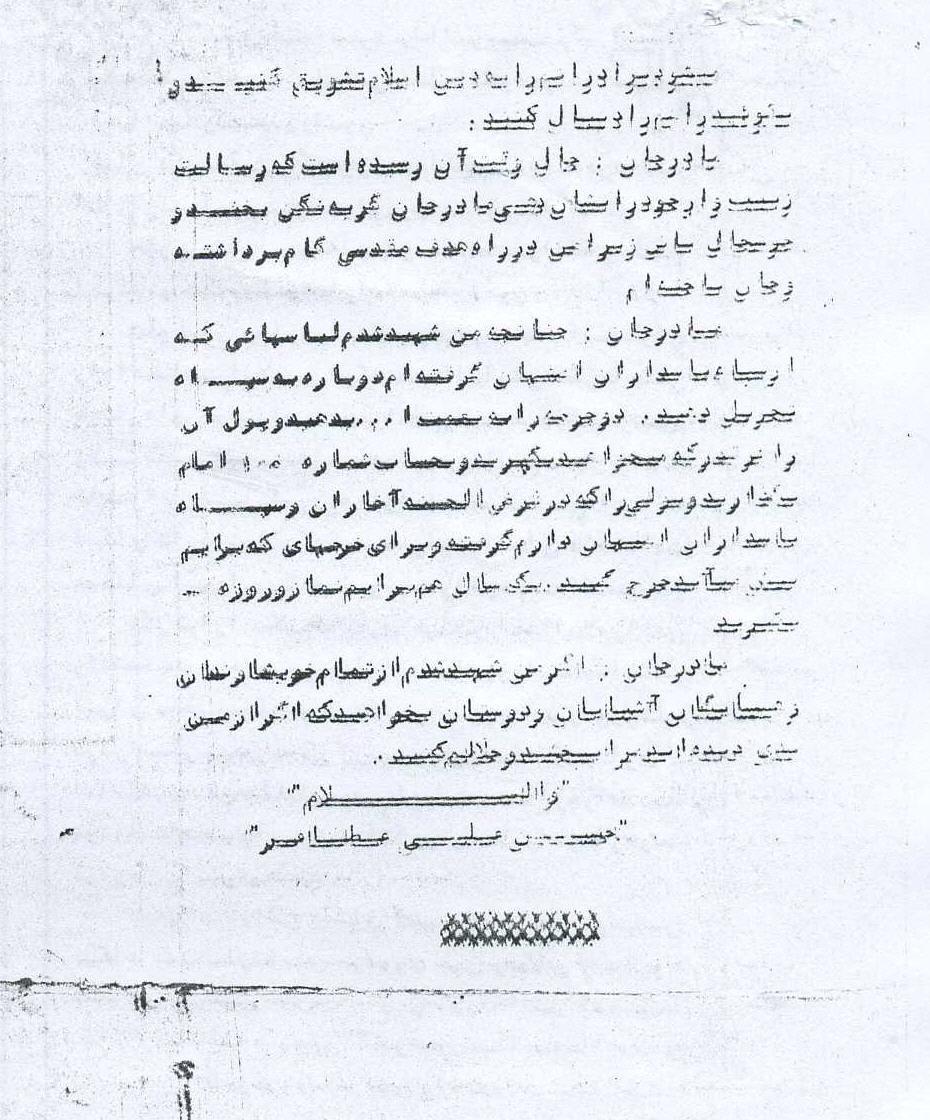 میشود برادرانم را به دین اسلام تشویق کنید و
بگوئید راهم را دنبال کنید :
مادرجان : حال وقت آن رسیده است که رسالت
زینب را بر خود مادرجان گریه نکن بخند و
خوشحال باش زیرا من در راه هدف مقدسی گام برداشته
و جان باخته ام
مادرجان : چنانچه من شهید شدم لباسهائی که
از سپاه پاسداران اصفهان گرفته ام دوباره به سپاه
تحویل دهید. دوچرخه را به ... بدهید و پول آن
را هر قدر که میخواهید بگیرید و بحساب شماره ۱۰۰ امام
بگذارید و پولی را که در قرض الحسنه آغاجاران و سپاه
پاسداران اصفهان دارم گرفته و برای خرجهای که برایم
پیش میآید خرج کنید. یکسال هم برایم نماز و روزه
بگیرید
مادرجان : اگر من شهید شدم از تمام خویشاوندان
و همسایگان آشنایان و دوستان بخواهید که اگر از من
بدی دیده اند مرا ببخشند و حلالم کنید .
"والسلام"
"حسین علی عطاافر"